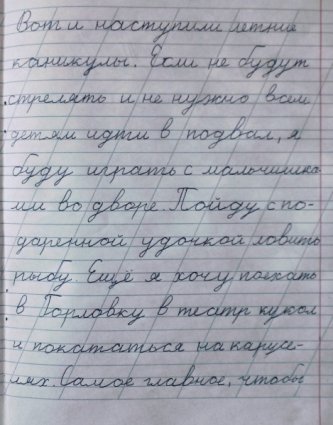 Вот и наступили летние
каникулы. Если не будут
стрелять и не нужно всем
детям идти в подвал, я
буду играть с мальчишка-
ми во дворе. Пойду с по-
даренной удочкой ловить
рыбу. Ещё я хочу поехать
в Горловку в театр кукол
и покататься на карусе-
лях. Самое главное, чтобы